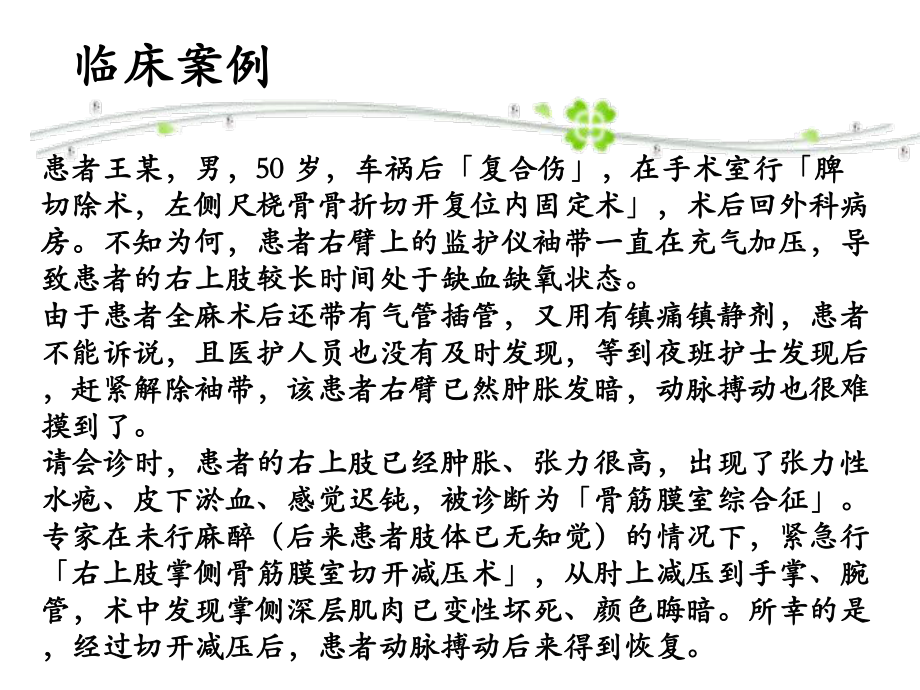 临床案例
患者王某，男，50 岁，车祸后「复合伤」，在手术室行「脾
切除术，左侧尺桡骨骨折切开复位内固定术」，术后回外科病
房。不知为何，患者右臂上的监护仪袖带一直在充气加压，导
致患者的右上肢较长时间处于缺血缺氧状态。
由于患者全麻术后还带有气管插管，又用有镇痛镇静剂，患者
不能诉说，且医护人员也没有及时发现，等到夜班护士发现后
，赶紧解除袖带，该患者右臂已然肿胀发暗，动脉搏动也很难
摸到了。
请会诊时，患者的右上肢已经肿胀、张力很高，出现了张力性
水疱、皮下淤血、感觉迟钝，被诊断为「骨筋膜室综合征」。
专家在未行麻醉（后来患者肢体已无知觉）的情况下，紧急行
「右上肢掌侧骨筋膜室切开减压术」，从肘上减压到手掌、腕
管，术中发现掌侧深层肌肉已变性坏死、颜色晦暗。所幸的是
，经过切开减压后，患者动脉搏动后来得到恢复。